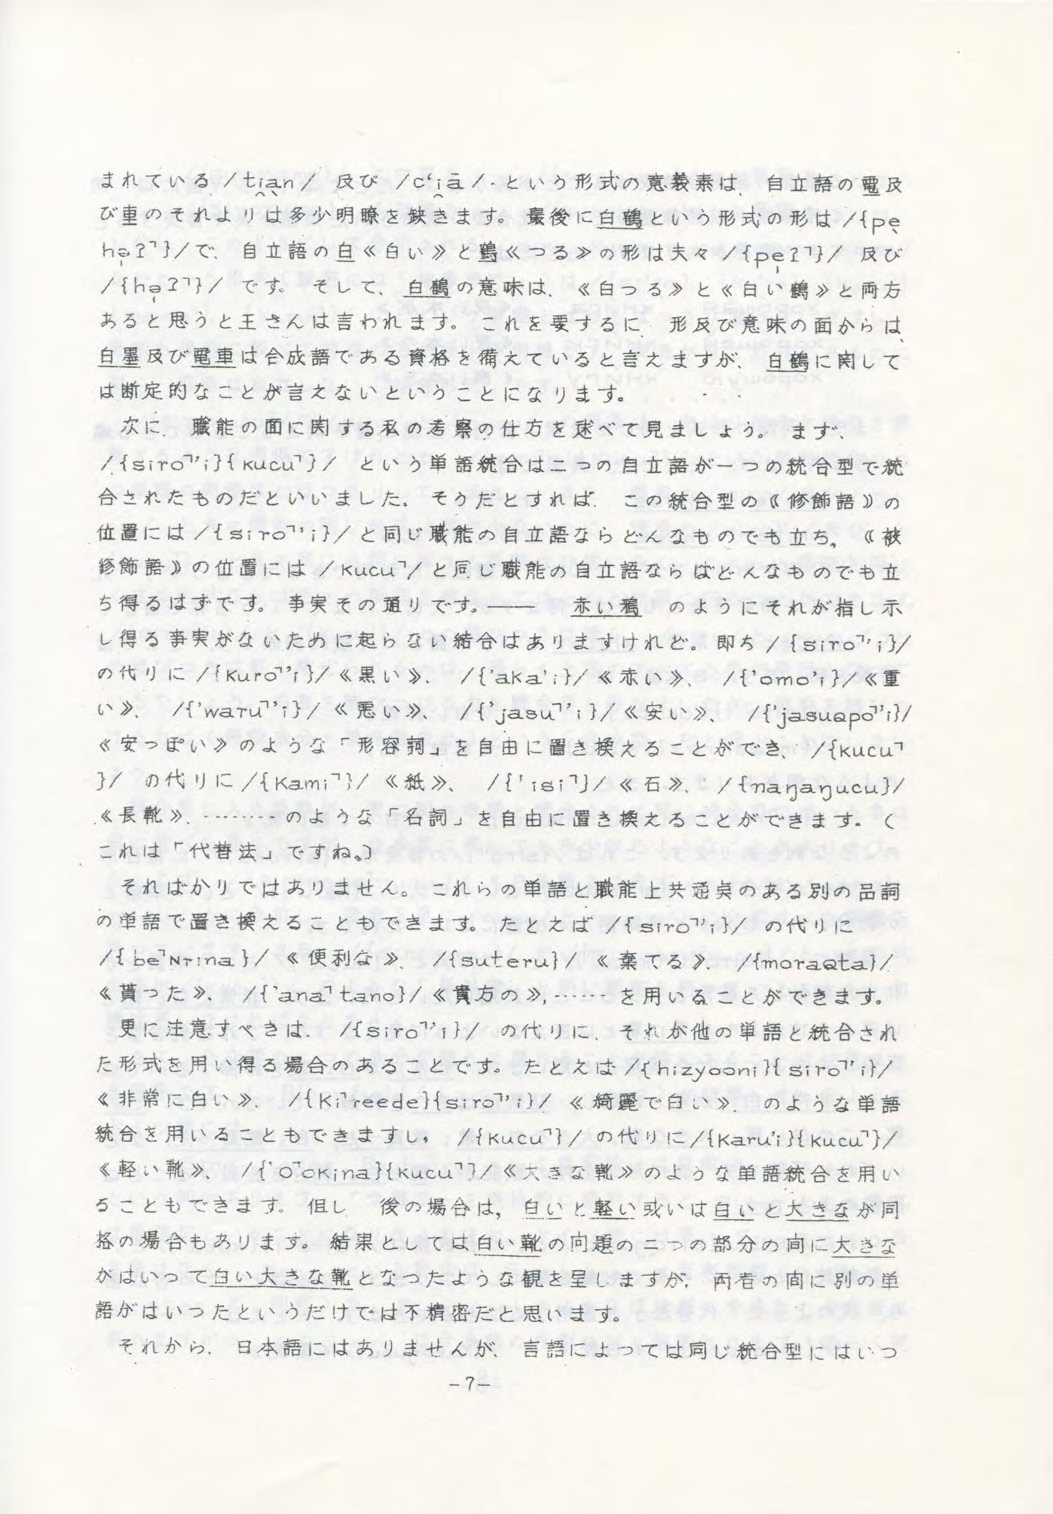 まれている /ti̯an/ 及び /c‘i̯ā/ という形式の意義素は、自立語の電及
び車のそれよりは多少明瞭を欠きます。最後に白鶴という形式の形は /{pe̯
hə̯ʔ˥}/で、自立語の白《白い》と鶴《つる》の形は夫々 /{pe̯ʔ˥}/ 及び
/{hə̯ʔ˥}/ です。そして、白鶴の意味は、《白つる》と《白い鶴》と両方
あると思うと王さんは言われます。これを要するに、形及び意味の面からは、
白墨及び電車は合成語である資格を備えていると言えますが、白鶴に関して
は断定的なことが言えないということになります。
次に、職能の面に関する私の考察の仕方を述べて見ましょう。まず、
/{siro˥’i}{kucu˥}/ という単語統合は二つの自立語が一つの統合型で統
合されたものだといいました。そうだとすれば、この統合型の《修飾語》の
位置には /{siro˥’i}/と同じ職能の自立語ならどんなものでも立ち、《被
修飾語》の位置には /kucu˥/と同じ職能の自立語ならばどんなものでも立
ち得るはずです。事実その通りです。—— 赤い鴉 のようにそれが指し示
し得る事実がないために起らない結合はありますけれど。即ち /{siro˥’i}/
の代りに /{kuro˥’i}/《黒い》、/{’aka’i}/《赤い》、/{’omo’i}/《重
い》、/{’waru˥’i}/《悪い》、/{’jasu˥’i}/《安い》、/{’jasuQpo˥’i}/
《安っぽい》のような「形容詞」を自由に置き換えることができ、/{kucu˥
}/ の代りに /{kami˥}/《紙》、/{’isi˥}/《石》、/{naŋaŋucu}/
《長靴》、………のような「名詞」を自由に置き換えることができます。(
これは「代替法」ですね。)
そればかりではありません。これらの単語と職能上共通点のある別の品詞
の単語で置き換えることもできます。たとえば /{siro˥’i}/ の代りに
/{be˥Nrina}/《便利な》、/{suteru}/《棄てる》、/{moraQta}/
《貰った》、/{’ana˥tano}/《貴方の》,……を用いることができます。
更に注意すべきは、/{siro˥’i}/ の代りに、それが他の単語と統合され
た形式を用い得る場合のあることです。たとえば /{hizyooni}{siro˥’i}/
《非常に白い》、/{ki˥reede}{siro˥’i}/《綺麗で白い》、のような単語
統合を用いることもできますし、/{kucu˥}/ の代りに/{karu’i}{kucu˥}/
《軽い靴》、/{’o˥okina}{kucu˥}/《大きな靴》のような単語統合を用い
ることもできます。但し、後の場合は、白いと軽い或いは白いと大きなが同
格の場合もあります。結果としては白い靴の問題の二つの部分の間に大きな
がはいって白い大きな靴となったような観を呈しますが、両者の間に別の単
語がはいったというだけでは不精密だと思います。
それから、日本語にはありませんが、言語によっては同じ統合型にはいつ
-7-